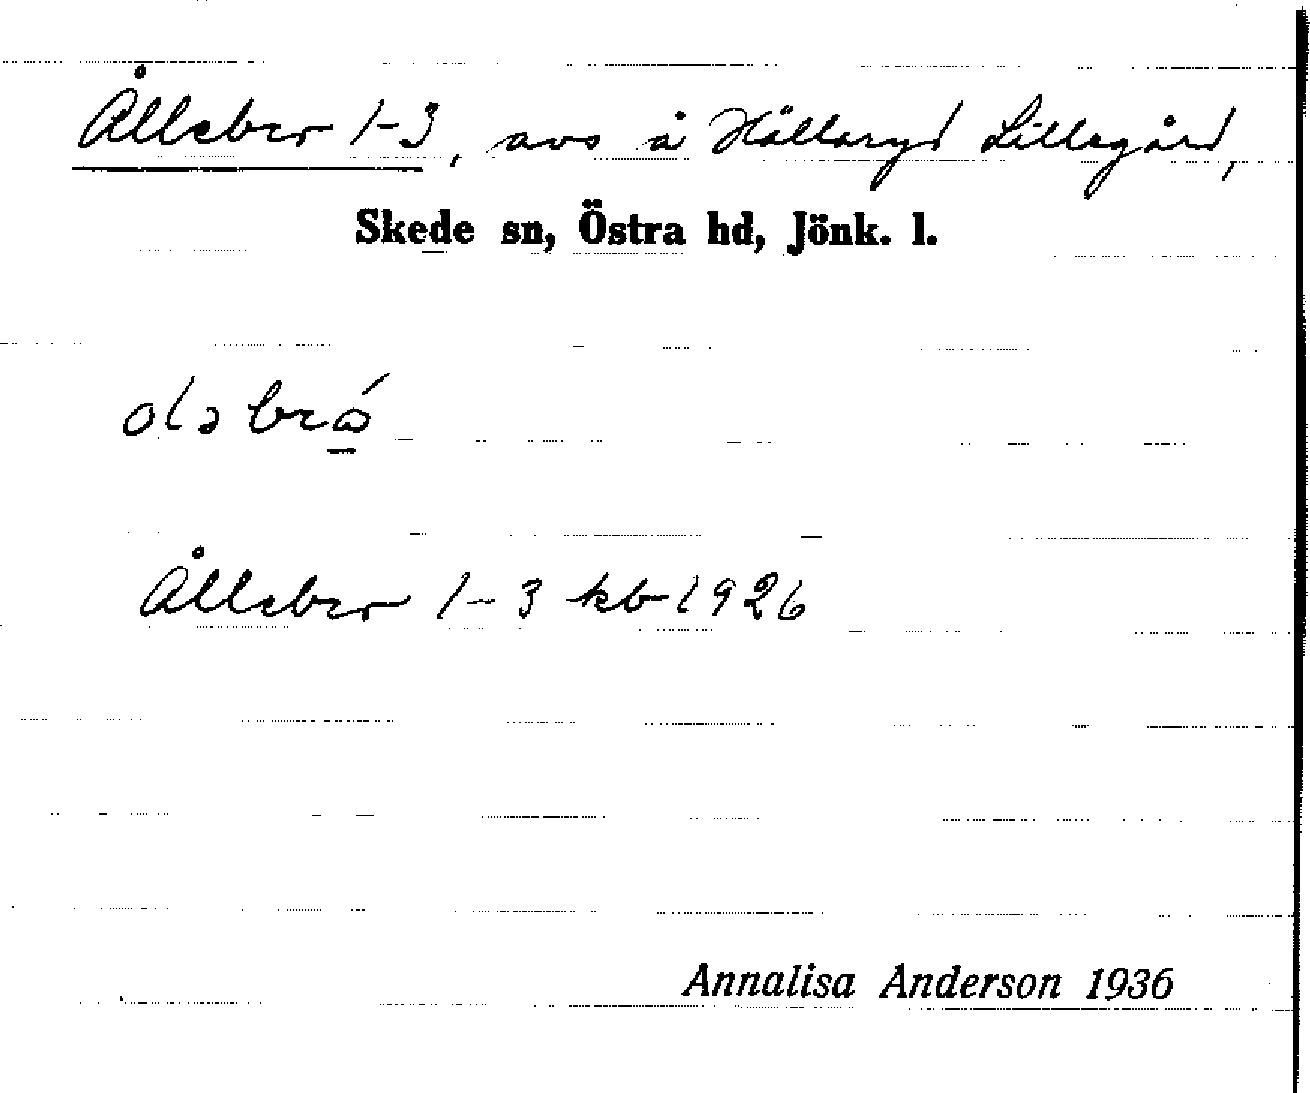 Ållebro 1-3, avs å Hällaryd Lillegård,
Skede sn, Östra hd, Jönk. l.
Ållebro 1-3 kb 1926
Annalisa Anderson 1936